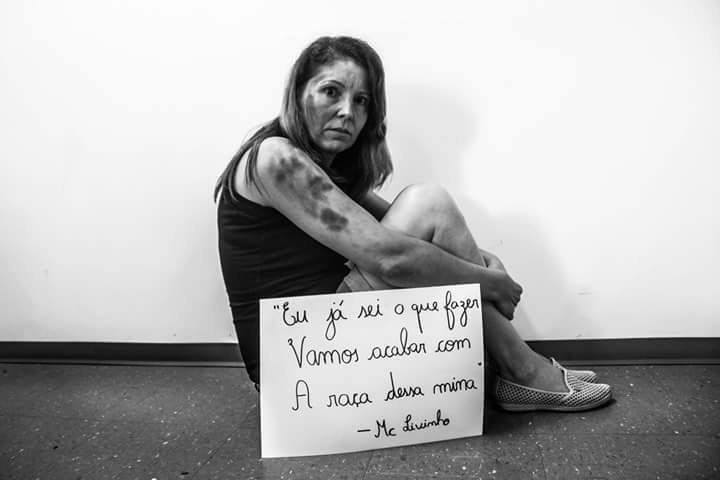 "Eu já sei o que fazer
Vamos acabar com
A raça dessa mina"
- Mc Livinho